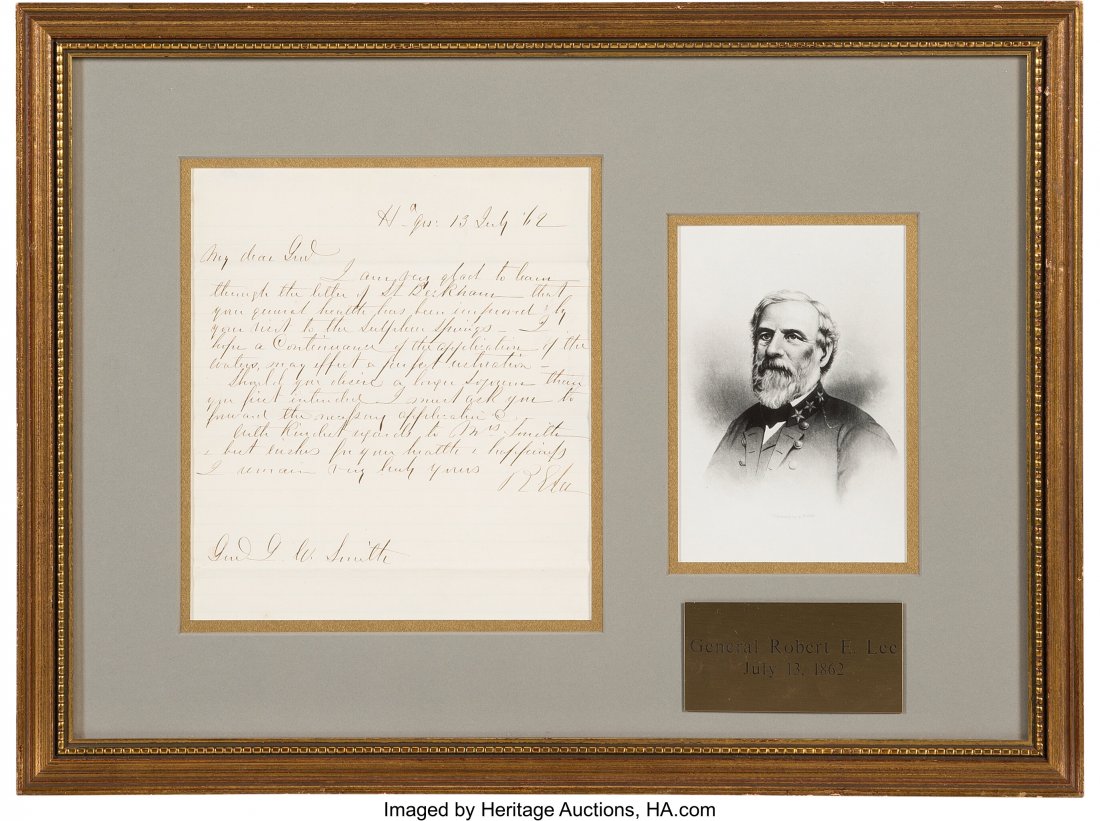 Hd Qrs: 13 July '62
My dear Genl
I am very glad to learn
through the letter of Lt Beckham that
your general health has been improved by
your visit to the Sulphur Springs - I
hope a Continuance of the application of the
waters, may effect a perfect restoration -
Should you desire a longer sojourn than
you first intended I must ask you to
forward the necessary application
With kindest regards to Mrs Smith
& best wishes for your health & happiness
I remain very truly yours
R E Lee
Genl G. W. Smith
General Robert E. Lee
July 13, 1862
Imaged by Heritage Auctions, HA.com